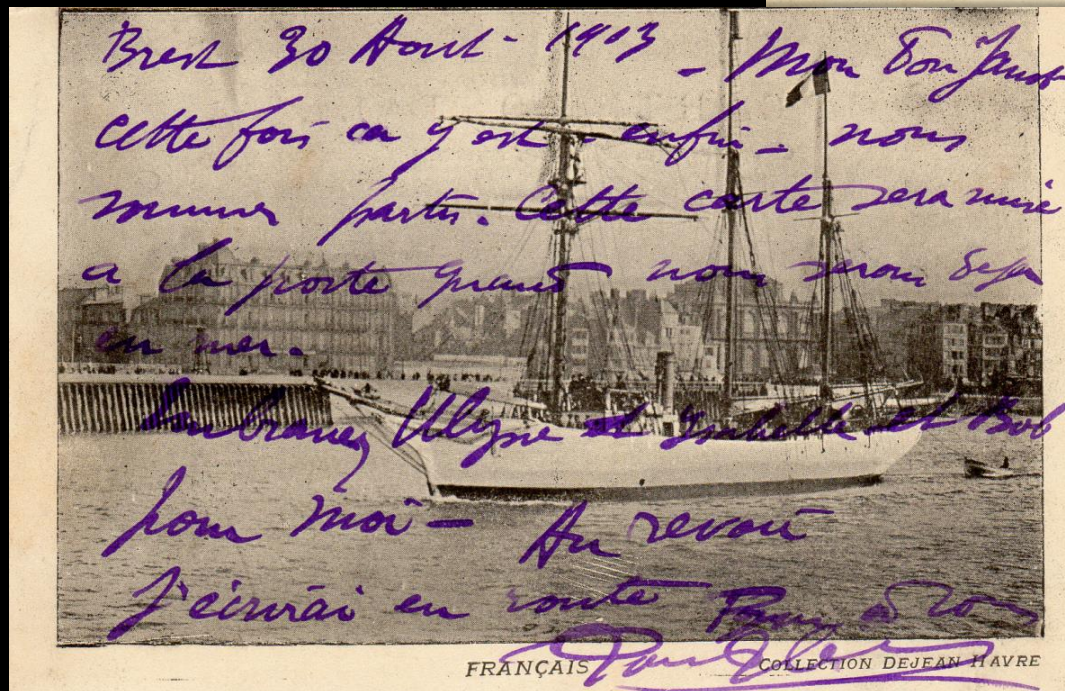 Brest 30 Aout - 1903 - Mon bon
cette fois ca y est - enfin - nous
sommes partis. Cette carte sera mise
a la poste quand nous serons deja
en mer.
Embrassez Ulysse et Isabelle et Bob
pour moi - Au revoir
J'écrirai en route
FRANÇAIS
COLLECTION DEJEAN HAVRE